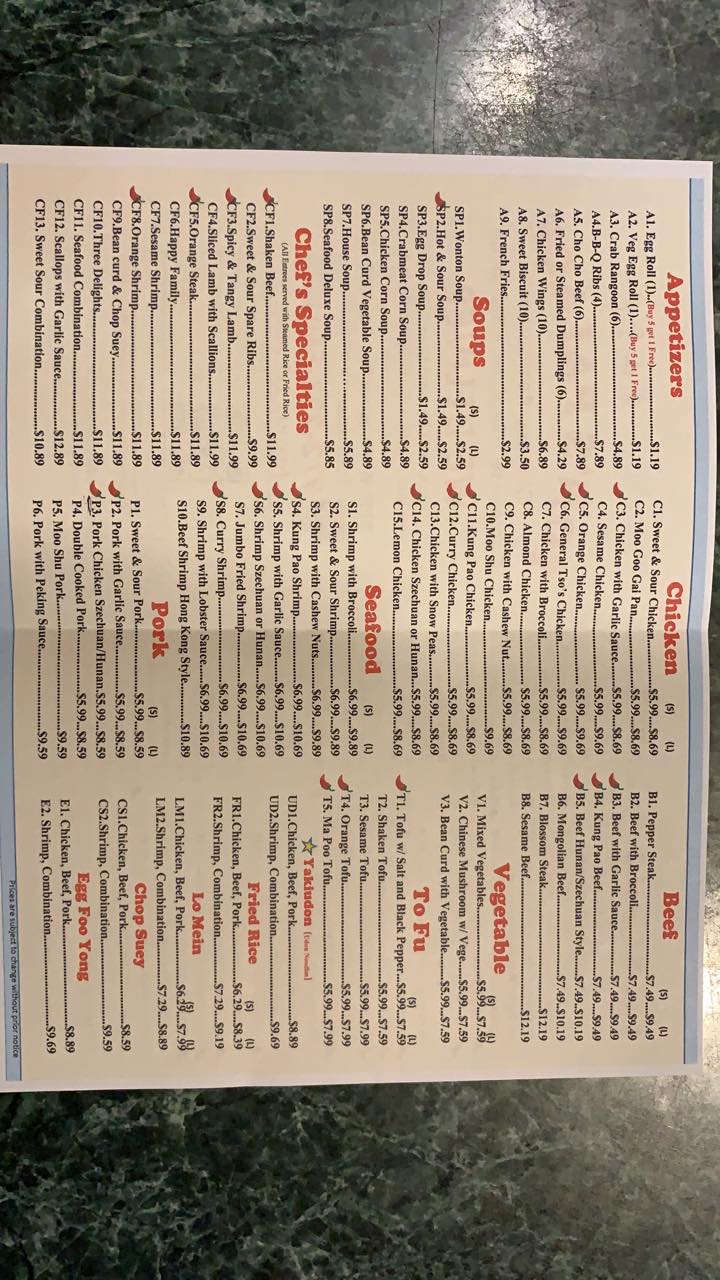 Appetizers
A1. Egg Roll (1)...(Buy 5 get 1 Free)...............$1.19
A2. Veg Egg Roll (1)....(Buy 5 get 1 Free)....$1.19
A3. Crab Rangoon (6)..........................$4.89
A4.B-B-Q Ribs (4)................................$7.89
A5. Cho Cho Beef (6)............................$7.89
A6. Fried or Steamed Dumplings (6)....$4.29
A7. Chicken Wings (10)........................$6.89
A8. Sweet Biscuit (10)...........................$3.50
A9. French Fries....................................$2.99
Soups
(S) (L)
SP1.Wonton Soup.....................$1.49.....$2.59
SP2.Hot & Sour Soup..............$1.49.....$2.59
SP3.Egg Drop Soup.................$1.49.....$2.59
SP4.Crabmeat Corn Soup......................$4.89
SP5.Chicken Corn Soup.........................$4.89
SP6.Bean Curd Vegetable Soup.............$4.89
SP7.House Soup......................................$5.89
SP8.Seafood Deluxe Soup......................$5.85
Chef's Specialties
(All Entrees served with Steamed Rice or Fried Rice)
CF1.Shaken Beef..................................$11.99
CF2.Sweet & Sour Spare Ribs..............$9.99
CF3.Spicy & Tangy Lamb...................$11.99
CF4.Sliced Lamb with Scallions..........$11.99
CF5.Orange Steak................................$11.89
CF6.Happy Family...............................$11.89
CF7.Sesame Shrimp.............................$11.89
CF8.Orange Shrimp.............................$11.89
CF9.Bean curd & Chop Suey..............$11.89
CF10.Three Delights............................$11.89
CF11. Seafood Combination.................$11.89
CF12. Scallops with Garlic Sauce........$12.89
CF13. Sweet Sour Combination..........$10.89
Chicken
(S) (L)
C1. Sweet & Sour Chicken............$5.99....$8.69
C2. Moo Goo Gai Pan...................$5.99....$8.69
C3. Chicken with Garlic Sauce.....$5.99....$8.69
C4. Sesame Chicken......................$5.99....$9.69
C5. Orange Chicken......................$5.99....$9.69
C6. General Tso's Chicken...........$5.99....$9.69
C7. Chicken with Broccoli............$5.99....$8.69
C8. Almond Chicken.....................$5.99....$8.69
C9. Chicken with Cashew Nut.....$5.99....$8.69
C10.Moo Shu Chicken..............................$9.69
C11.Kung Pao Chicken.................$5.99....$8.69
C12.Curry Chicken.......................$5.99....$8.69
C13.Chicken with Snow Peas.......$5.99....$8.69
C14. Chicken Szechuan or Hunan..$5.99....$8.69
C15.Lemon Chicken......................$5.99....$8.69
Seafood
(S) (L)
S1. Shrimp with Broccoli..........$6.99....$9.89
S2. Sweet & Sour Shrimp.........$6.99....$9.89
S3. Shrimp with Cashew Nuts..$6.99....$9.89
S4. Kung Pao Shrimp..............$6.99....$10.69
S5. Shrimp with Garlic Sauce..$6.99....$10.69
S6. Shrimp Szechuan or Hunan..$6.99....$10.69
S7. Jumbo Fried Shrimp.........$6.99....$10.69
S8. Curry Shrimp....................$6.99....$10.69
S9. Shrimp with Lobster Sauce..$6.99....$10.69
S10.Beef Shrimp Hong Kong Style........$10.89
Pork
(S) (L)
P1. Sweet & Sour Pork................$5.99....$8.59
P2. Pork with Garlic Sauce.........$5.99....$8.59
P3. Pork Chicken Szechuan/Hunan.$5.99....$8.59
P4. Double Cooked Pork.............$5.99....$8.59
P5. Moo Shu Pork...................................$9.59
P6. Pork with Peking Sauce....................$9.59
Beef
(S) (L)
B1. Pepper Steak........................$7.49....$9.49
B2. Beef with Broccoli................$7.49....$9.49
B3. Beef with Garlic Sauce.........$7.49....$9.49
B4. Kung Pao Beef.....................$7.49....$9.49
B5. Beef Hunan/Szechuan Style...$7.49...$10.19
B6. Mongolian Beef...................$7.49...$10.19
B7. Blossom Steak...............................$12.19
B8. Sesame Beef..................................$12.19
Vegetable
(S) (L)
V1. Mixed Vegetables.................$5.99....$7.59
V2. Chinese Mushroom w/ Vege.....$5.99....$7.59
V3. Bean Curd with Vegetable.....$5.99....$7.59
To Fu
(S) (L)
T1. Tofu w/ Salt and Black Pepper...$5.99....$7.59
T2. Shaken Tofu..........................$5.99....$7.59
T3. Sesame Tofu..........................$5.99....$7.99
T4. Orange Tofu..........................$5.99....$7.99
T5. Ma Poo Tofu..........................$5.99....$7.99
Yakiudon [Udon Noodles]
UD1.Chicken, Beef, Pork.........................$8.89
UD2.Shrimp, Combination.....................$9.69
Fried Rice
(S) (L)
FR1.Chicken, Beef, Pork............$6.29....$8.39
FR2.Shrimp, Combination.........$7.29....$9.19
Lo Mein
(S) (L)
LM1.Chicken, Beef, Pork...........$6.29....$7.99
LM2.Shrimp, Combination........$7.29....$8.89
Chop Suey
CS1.Chicken, Beef, Pork........................$8.59
CS2.Shrimp, Combination.....................$9.59
Egg Foo Yong
E1. Chicken, Beef, Pork.........................$8.89
E2. Shrimp, Combination......................$9.69
Prices are subject to change without prior notice